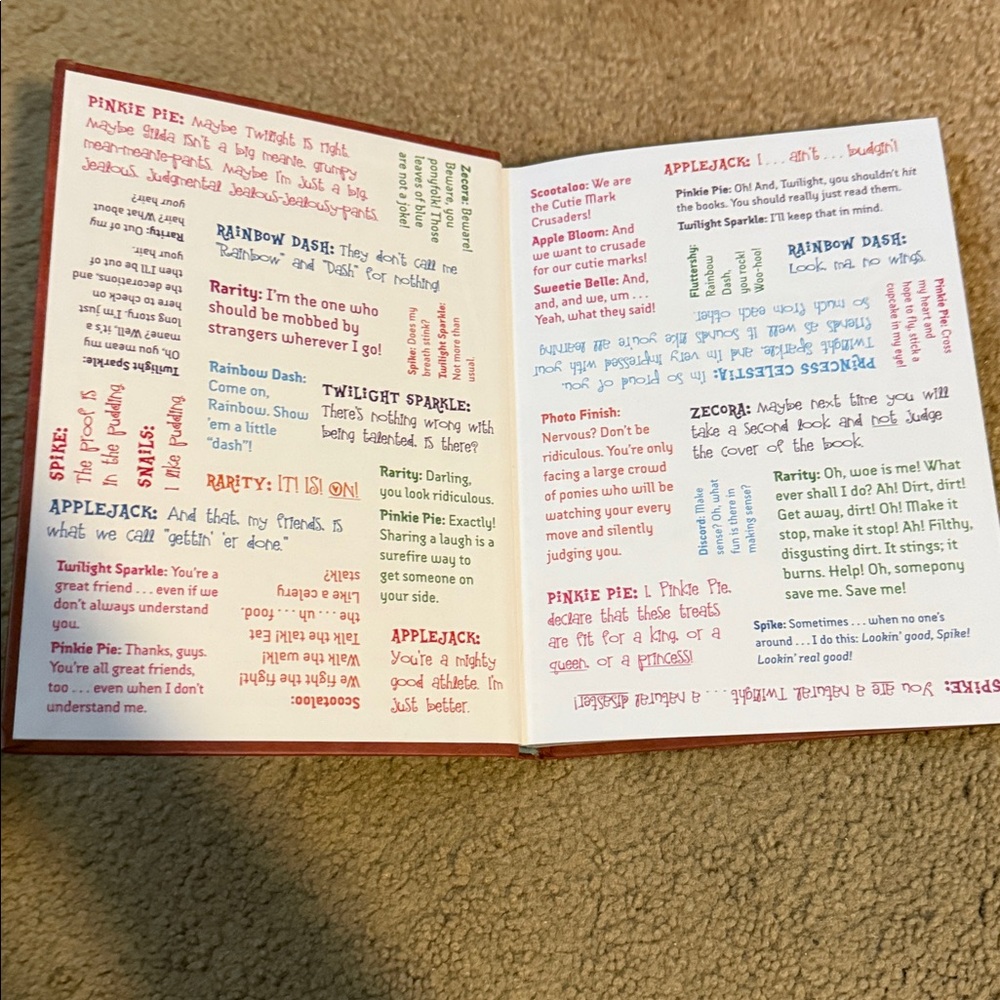 PINKIE PIE: Maybe Twilight is right.
Maybe Gilda isn't a big meanie, grumpy
mean-meanie-pants. Maybe I'm just a big,
jealous, judgmental jealous-jealousy-pants.
Zecora: Beware!
Beware, you
ponyfolk! Those
leaves of blue
are not a joke!
Twilight Sparkle:
Oh, you mean my
mane? Well, it's a
long story. I'm just
here to check on
the decorations, and
then I'll be out of
your hair.
Rarity: Out of my
hair? What about
your hair?
RAINBOW DASH: They don't call me
"Rainbow" and "Dash" for nothing!
Rarity: I'm the one who
should be mobbed by
strangers wherever I go!
Spike: Does my
breath stink?
Twilight Sparkle:
Not more than
usual.
Rainbow Dash:
Come on,
Rainbow. Show
'em a little
"dash"!
TWILIGHT SPARKLE:
There's nothing wrong with
being talented, is there?
SPIKE:
The proof is
in the pudding.
SNAILS:
I like pudding.
RARITY: IT! IS! ON!
APPLEJACK: And that, my friends, is
what we call "gettin' 'er done."
Rarity: Darling,
you look ridiculous.
Pinkie Pie: Exactly!
Sharing a laugh is a
surefire way to
get someone on
your side.
Twilight Sparkle: You're a
great friend . . . even if we
don't always understand
you.
Pinkie Pie: Thanks, guys.
You're all great friends,
too . . . even when I don't
understand me.
Scootaloo:
We fight the fight!
Walk the walk!
Talk the talk! Eat
the . . . uh . . . food.
Like a celery
stalk?
APPLEJACK:
You're a mighty
good athlete. I'm
just better.
APPLEJACK: I . . . ain't . . . budgin'!
Scootaloo: We are
the Cutie Mark
Crusaders!
Apple Bloom: And
we want to crusade
for our cutie marks!
Sweetie Belle: And,
and, and we, um . . .
Yeah, what they said!
Pinkie Pie: Oh! And, Twilight, you shouldn't hit
the books. You should really just read them.
Twilight Sparkle: I'll keep that in mind.
Fluttershy:
Rainbow
Dash,
you rock!
Woo-hoo!
RAINBOW DASH:
Look, ma, no wings.
Pinkie Pie: Cross
my heart and
hope to fly, stick a
cupcake in my eye!
PRINCESS CELESTIA: I'm so proud of you,
Twilight Sparkle, and I'm very impressed with your
friends as well. It sounds like you're all learning
so much from each other.
Photo Finish:
Nervous? Don't be
ridiculous. You're only
facing a large crowd
of ponies who will be
watching your every
move and silently
judging you.
ZECORA: Maybe next time you will
take a second look and not judge
the cover of the book.
Discord: Make
sense? Oh, what
fun is there in
making sense?
Rarity: Oh, woe is me! What
ever shall I do? Ah! Dirt, dirt!
Get away, dirt! Oh! Make it
stop, make it stop! Ah! Filthy,
disgusting dirt. It stings; it
burns. Help! Oh, somepony
save me. Save me!
PINKIE PIE: I, Pinkie Pie,
declare that these treats
are fit for a king, or a
queen, or a princess!
Spike: Sometimes . . . when no one's
around . . . I do this: Lookin' good, Spike!
Lookin' real good!
SPIKE: You are a natural, Twilight . . . . a natural disaster!